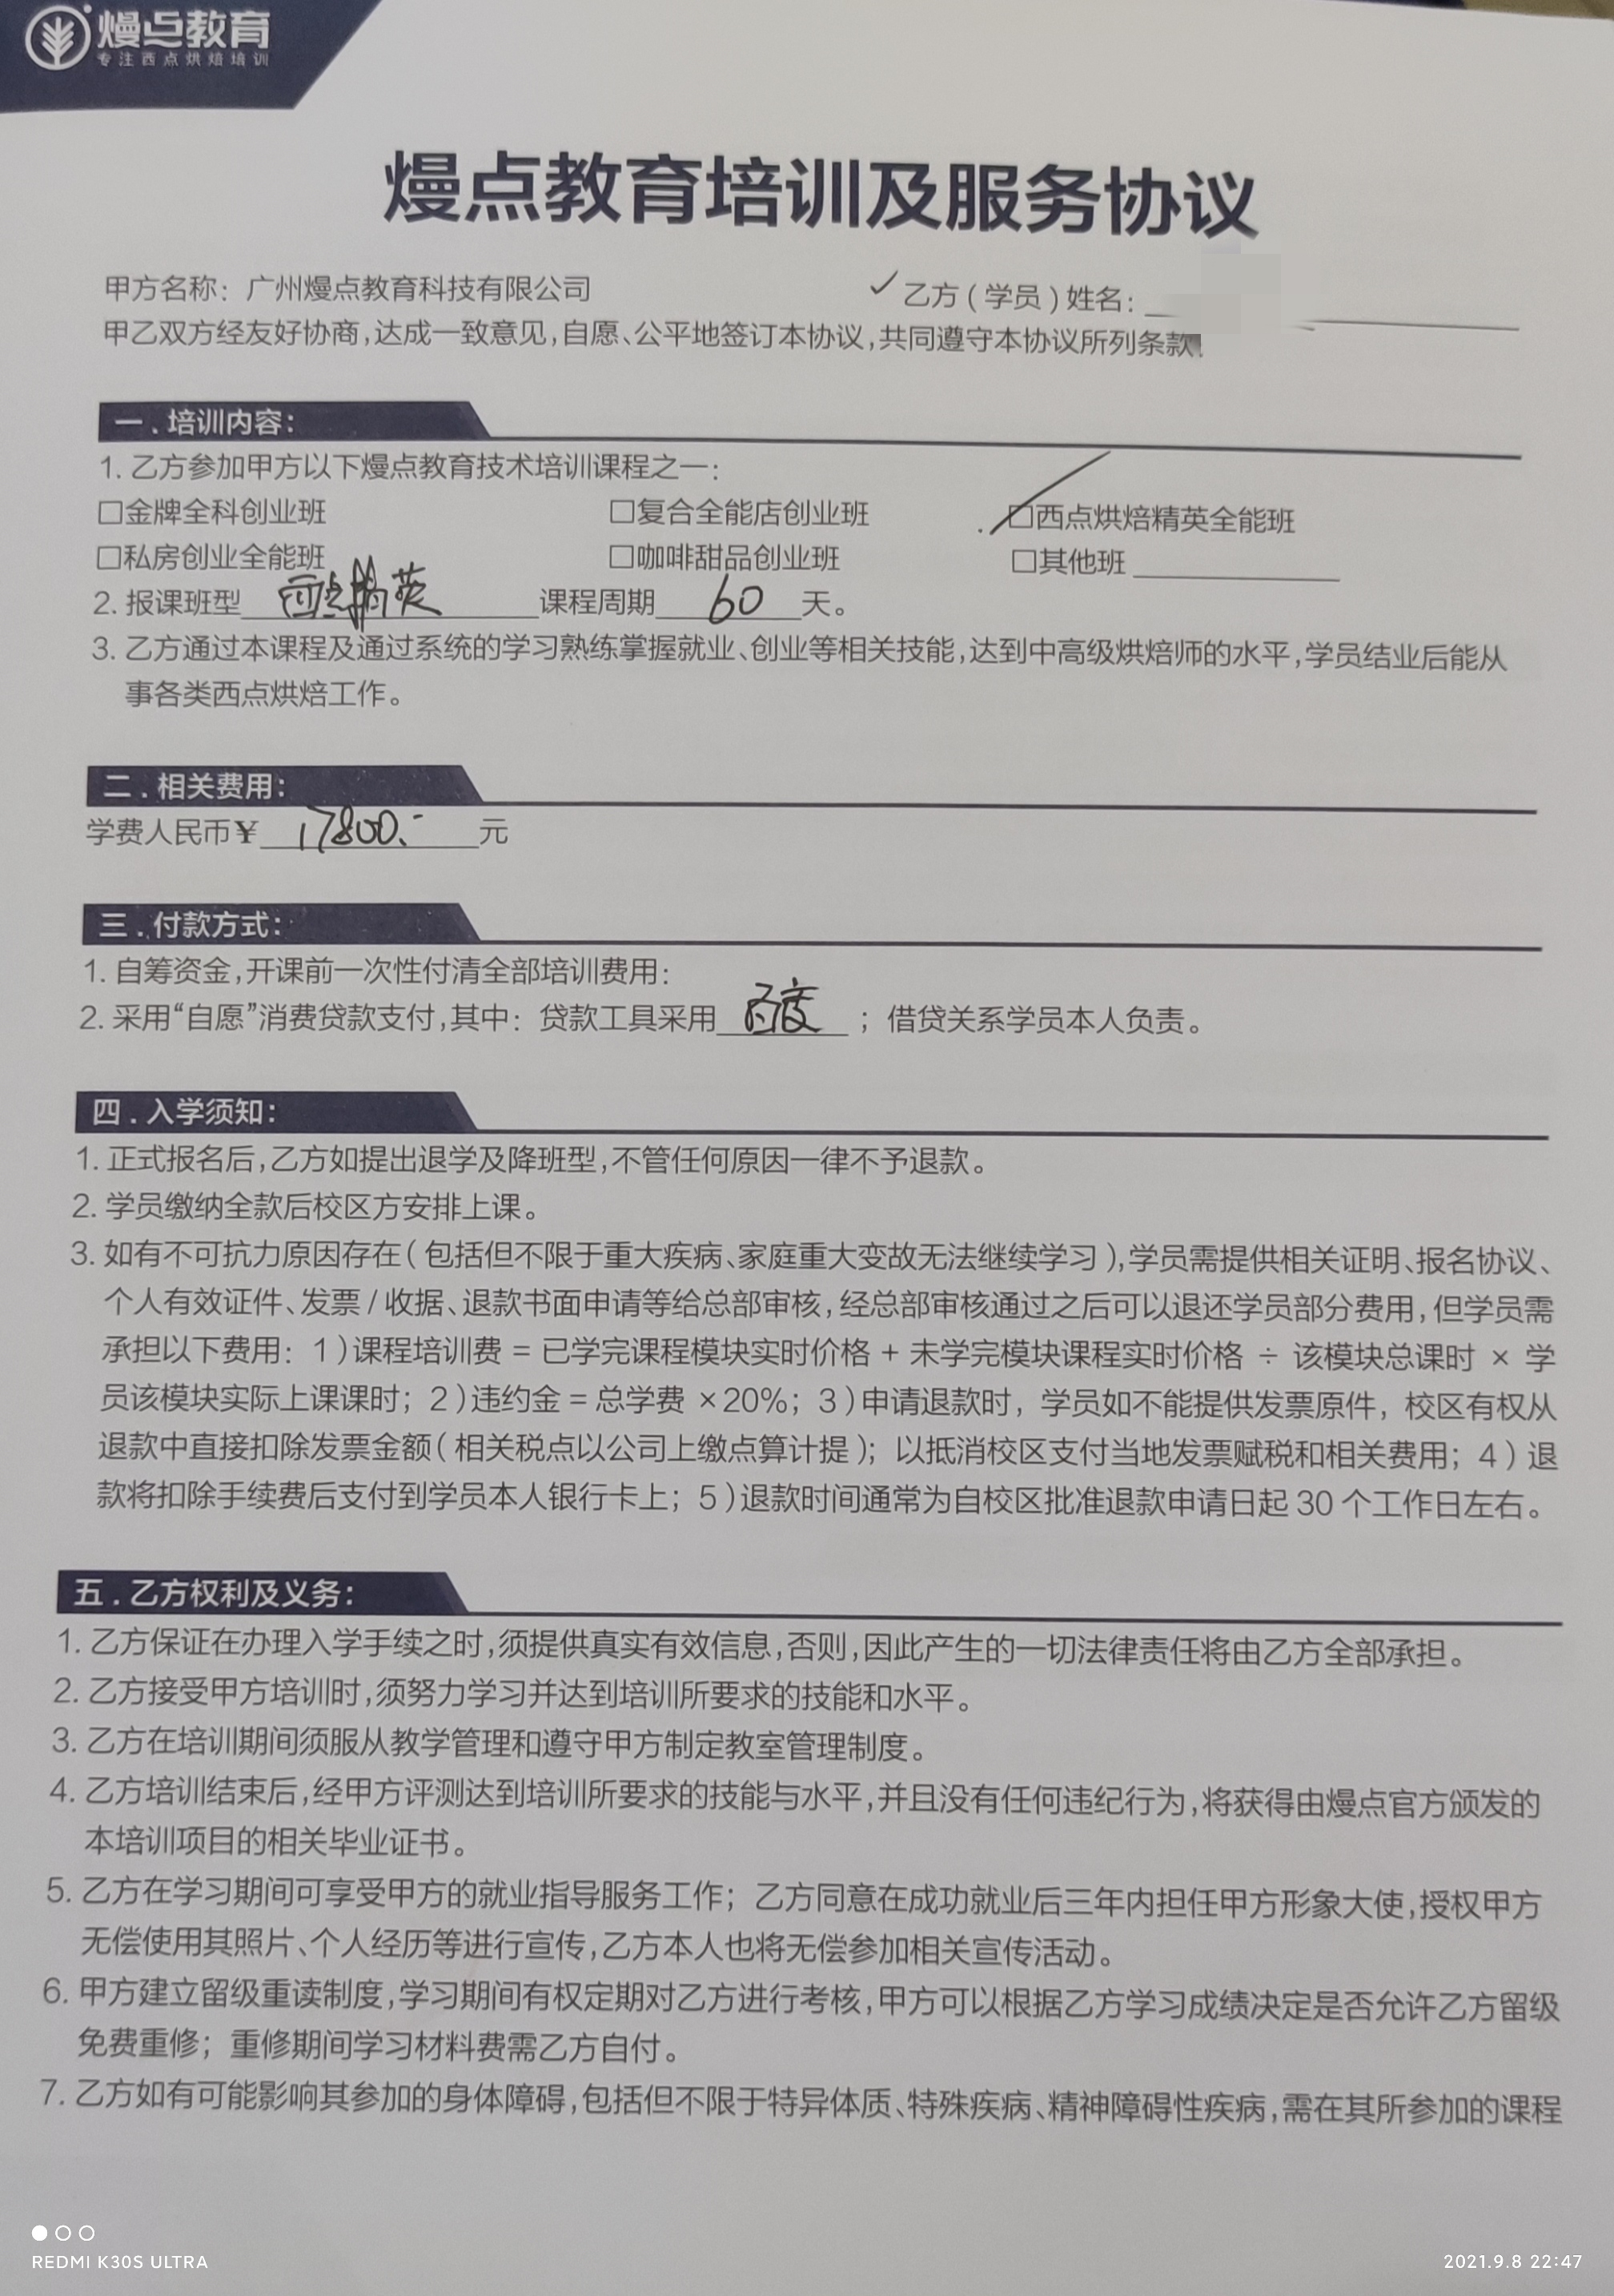 熳点教育
专注西点烘焙培训
熳点教育培训及服务协议
甲方名称：广州熳点教育科技有限公司 ✓乙方（学员）姓名：
甲乙双方经友好协商，达成一致意见，自愿、公平地签订本协议，共同遵守本协议所列条款
一．培训内容：
1. 乙方参加甲方以下熳点教育技术培训课程之一：
□金牌全科创业班 □复合全能店创业班 □西点烘焙精英全能班
□私房创业全能班 □咖啡甜品创业班 □其他班
2. 报课班型 西点精英 课程周期 60 天。
3. 乙方通过本课程及通过系统的学习熟练掌握就业、创业等相关技能，达到中高级烘焙师的水平，学员结业后能从
事各类西点烘焙工作。
二．相关费用：
学费人民币¥ 17800.- 元
三．付款方式：
1. 自筹资金，开课前一次性付清全部培训费用：
2. 采用“自愿”消费贷款支付，其中：贷款工具采用 百度 ；借贷关系学员本人负责。
四．入学须知：
1. 正式报名后，乙方如提出退学及降班型，不管任何原因一律不予退款。
2. 学员缴纳全款后校区方安排上课。
3. 如有不可抗力原因存在（包括但不限于重大疾病、家庭重大变故无法继续学习），学员需提供相关证明、报名协议、
个人有效证件、发票/收据、退款书面申请等给总部审核，经总部审核通过之后可以退还学员部分费用，但学员需
承担以下费用：1）课程培训费 = 已学完课程模块实时价格 + 未学完模块课程实时价格 ÷ 该模块总课时 × 学
员该模块实际上课课时；2）违约金 = 总学费 ×20%；3）申请退款时，学员如不能提供发票原件，校区有权从
退款中直接扣除发票金额（相关税点以公司上缴点算计提）；以抵消校区支付当地发票赋税和相关费用；4）退
款将扣除手续费后支付到学员本人银行卡上；5）退款时间通常为自校区批准退款申请日起 30 个工作日左右。
五．乙方权利及义务：
1. 乙方保证在办理入学手续之时，须提供真实有效信息，否则，因此产生的一切法律责任将由乙方全部承担。
2. 乙方接受甲方培训时，须努力学习并达到培训所要求的技能和水平。
3. 乙方在培训期间须服从教学管理和遵守甲方制定教室管理制度。
4. 乙方培训结束后，经甲方评测达到培训所要求的技能与水平，并且没有任何违纪行为，将获得由熳点官方颁发的
本培训项目的相关毕业证书。
5. 乙方在学习期间可享受甲方的就业指导服务工作；乙方同意在成功就业后三年内担任甲方形象大使，授权甲方
无偿使用其照片、个人经历等进行宣传，乙方本人也将无偿参加相关宣传活动。
6. 甲方建立留级重读制度，学习期间有权定期对乙方进行考核，甲方可以根据乙方学习成绩决定是否允许乙方留级
免费重修；重修期间学习材料费需乙方自付。
7. 乙方如有可能影响其参加的身体障碍，包括但不限于特异体质、特殊疾病、精神障碍性疾病，需在其所参加的课程
REDMI K30S ULTRA 2021.9.8 22:47